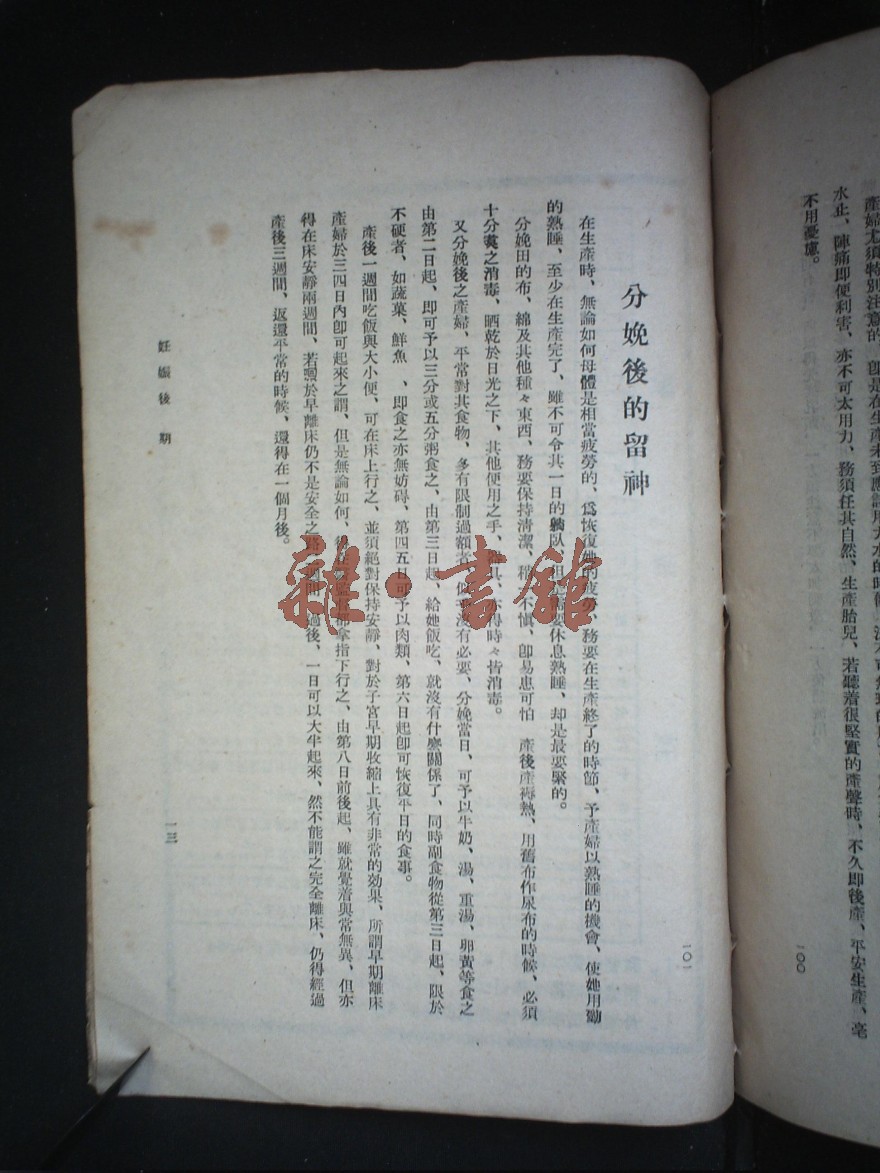 水止、陣痛即便利害、亦不可太用力、務須任其自然、生產胎兒、若聽着很堅實的產聲時、不久即後產、平安生產、毫
不用憂慮。
一〇〇
一〇一
分娩後的留神
在生產時、無論如何母體是相當疲勞的、爲恢復她的疲勞、務要在生產終了的時節、予產婦以熟睡的機會、使她用
的熟睡、至少在生產完了、雖不可令其一日的休息熟睡、却是最要緊的。
分娩田的布、綿及其他種々東西、務要保持清潔、稍不愼、卽易患可怕產後產褥熱、用舊布作尿布的時候、必須
十分之消毒、晒乾於日光之下、其他便用之手、得時々皆消毒。
又分娩後之產婦、平常對其食物、多有限制過額者、沒有必要、分娩當日、可予以牛奶、湯、重湯、卵黃等食之
由第二日起、即可予以三分或五分粥食之、由第三日起、給她飯吃、就沒有什麼關係了、同時副食物從第三日起、限於
不硬者、如蔬菜、鮮魚、即食之亦無妨碍、第四五日可予以肉類、第六日起卽可恢復平日的食事。
產後一週間吃飯與大小便、可在床上行之、並須絕對保持安靜、對於子宮早期收縮上具有非常的効果、所謂早期離床
產婦於三四日內卽可起來之謂、但是無論如何、指下行之、由第八日前後起、雖就覺着與常無異、但亦
得在床安靜兩週間、若於早離床仍不是安全之過後、一日可以大半起來、然不能謂之完全離床、仍得經過
產後三週間、返還平常的時候、還得在一個月後。
妊娠後期
一三
雜·書館